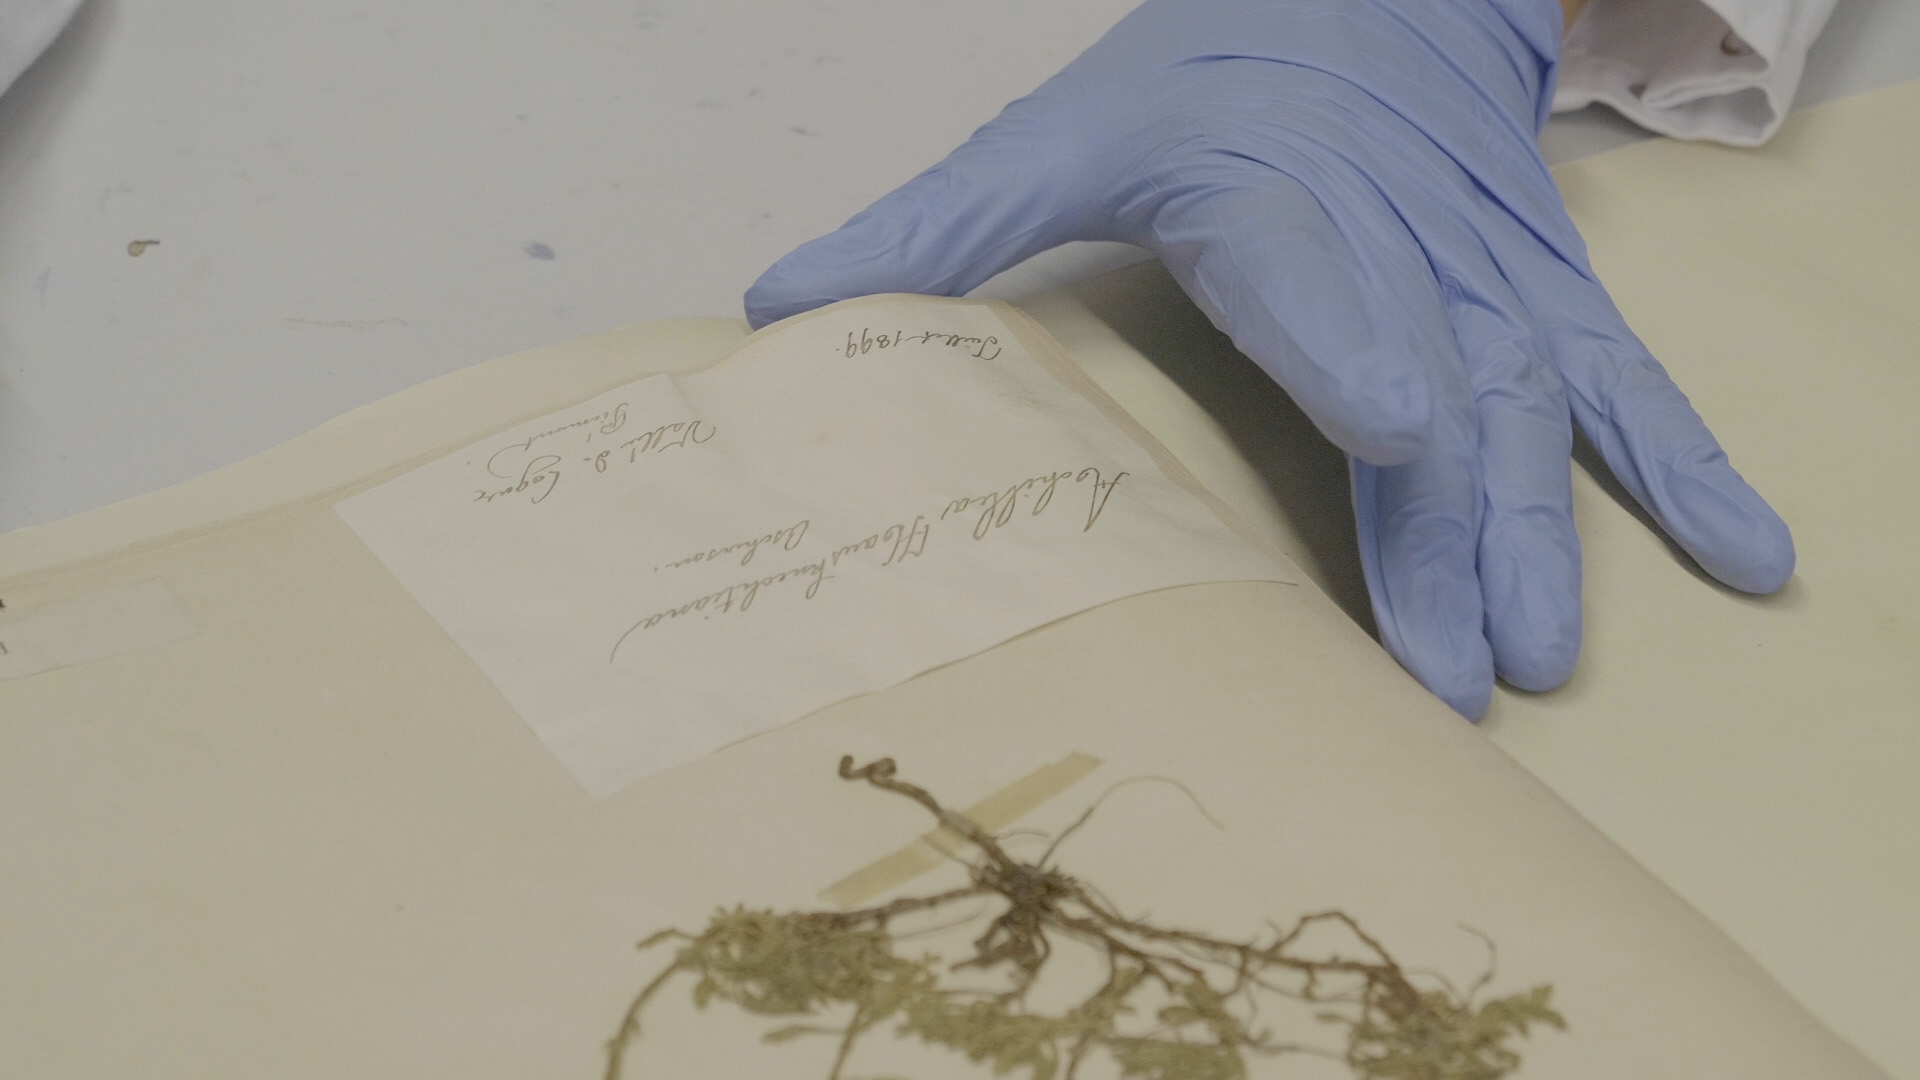 Achillea Haussknechtiana
Ascherson.
Vallé d. Cogne
Piémont.
Juillet 1899.